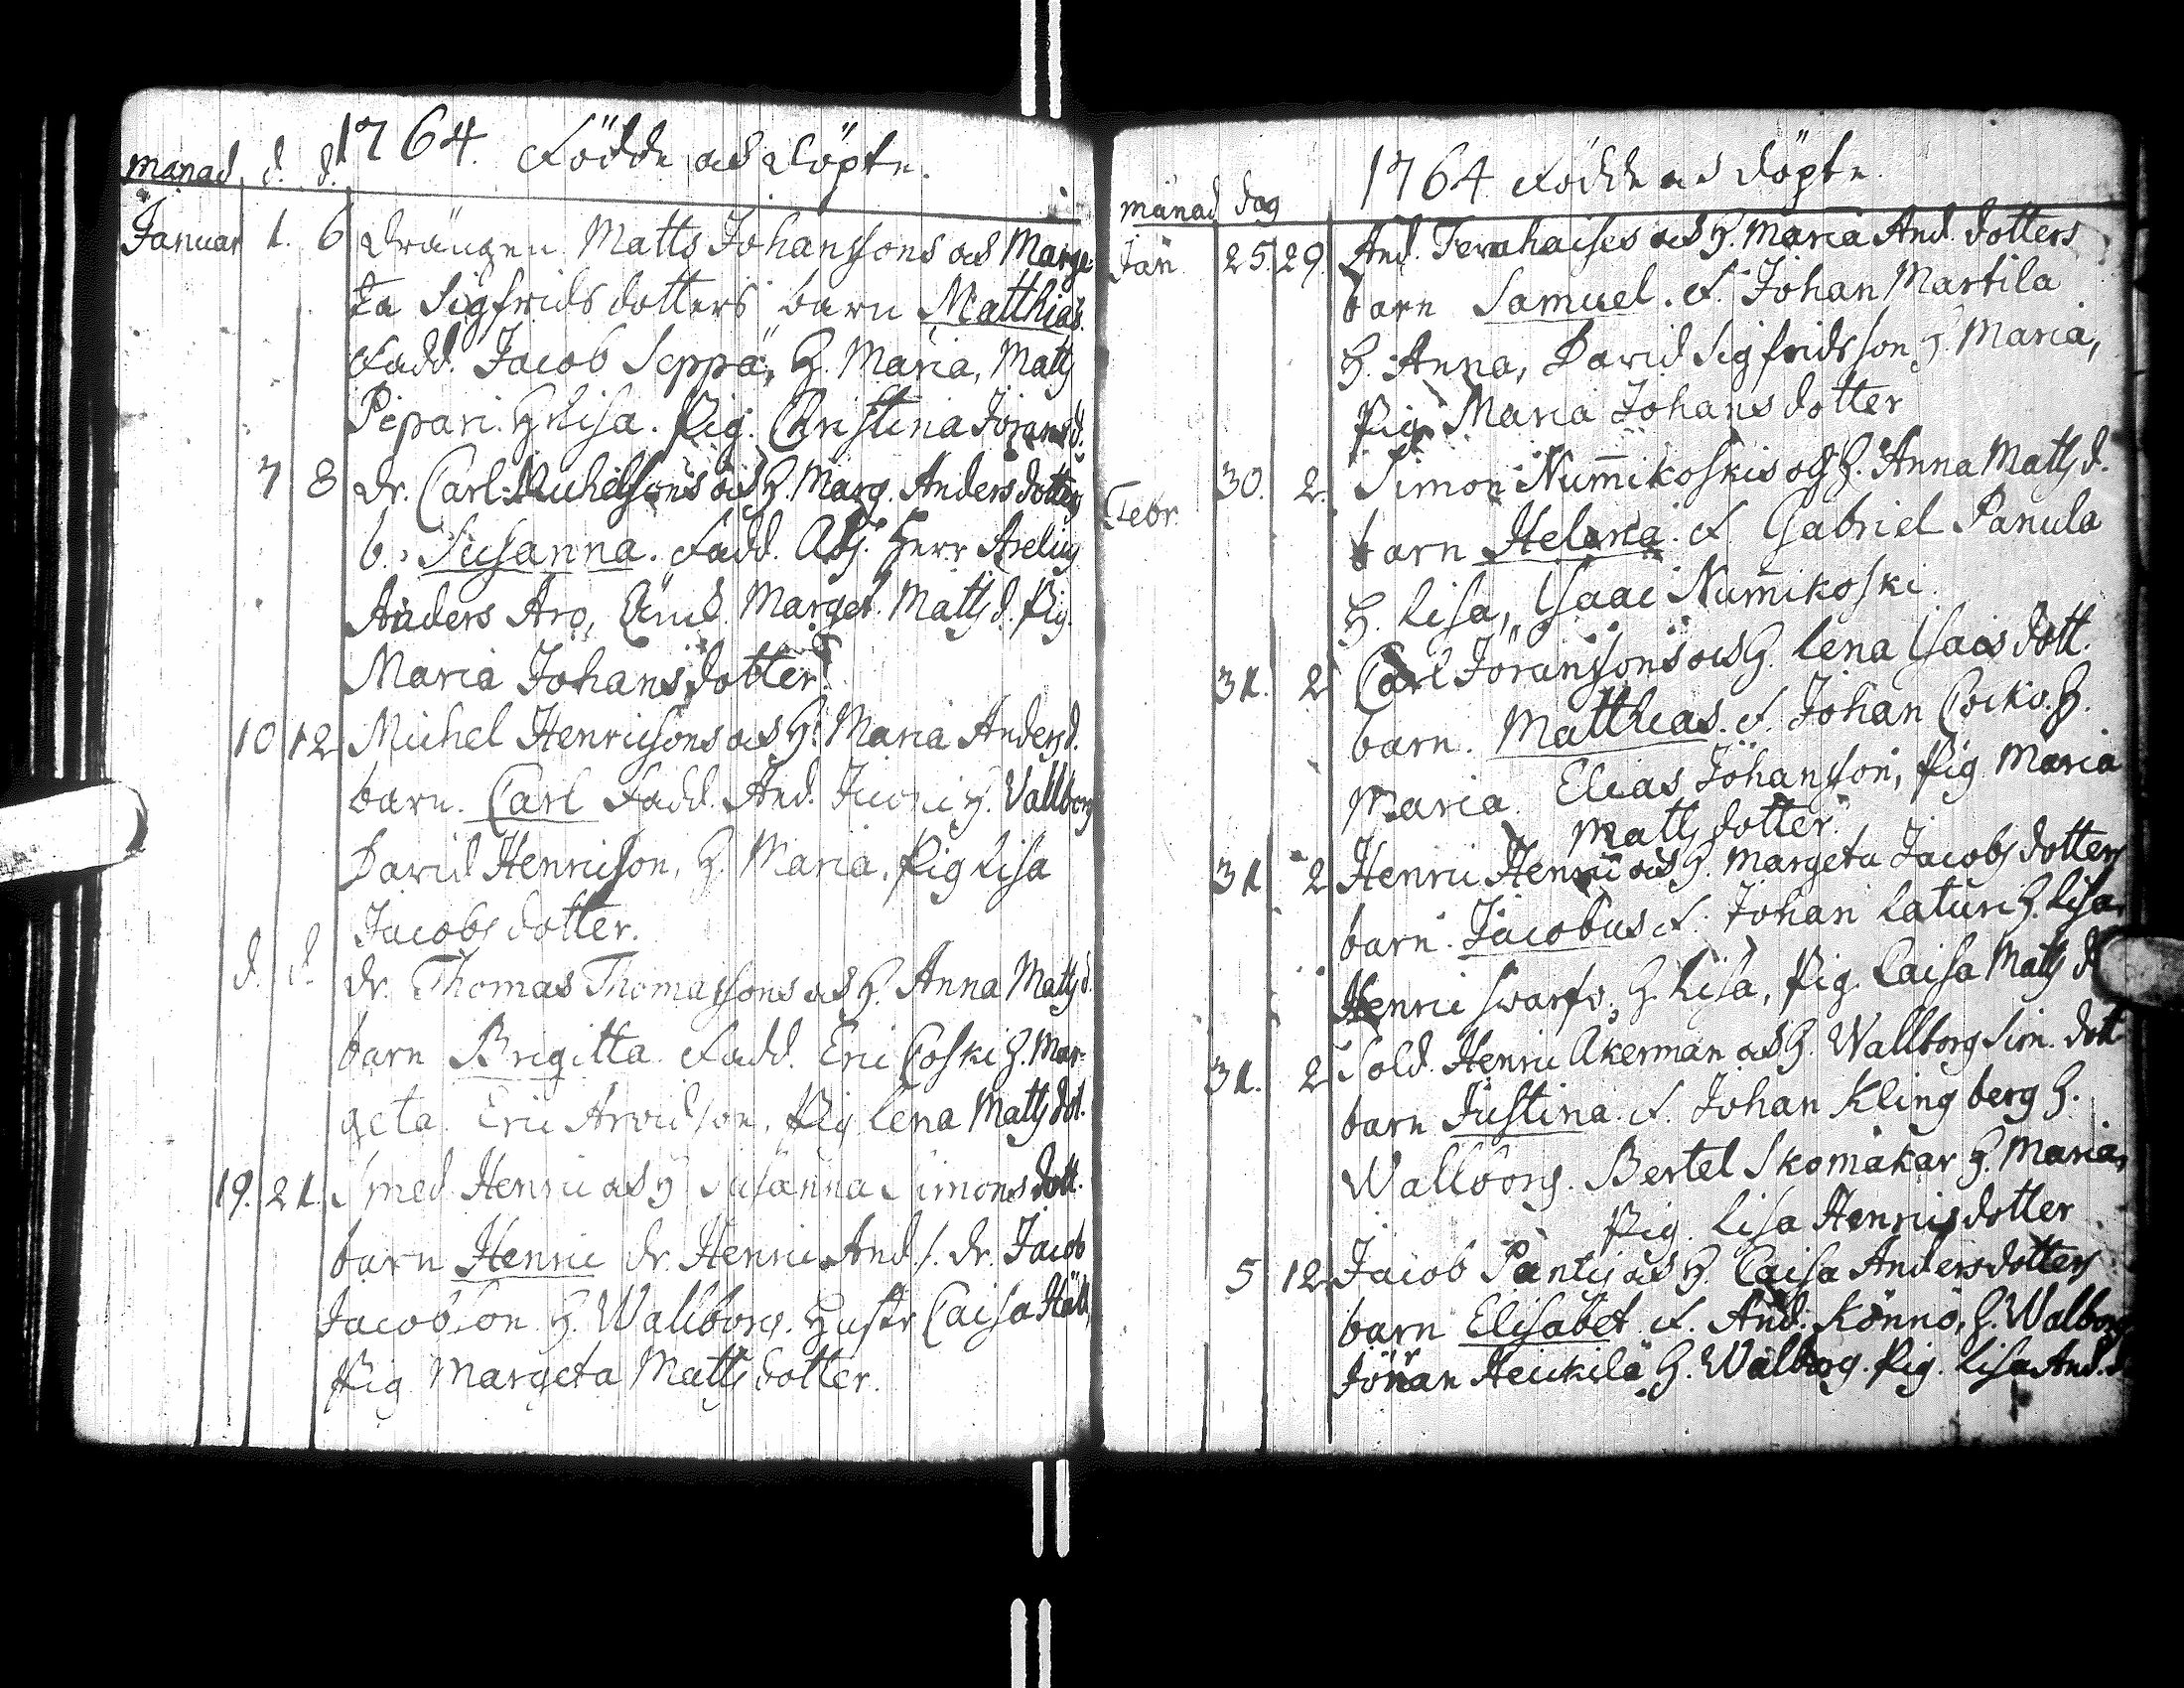 1764. Födde och Döpte.
månad d. d.
Januar 1. 6 Drängen Matts Johanssons och Marge
ta Sigfrids dotters barn Matthias.
Fadd. Jacob Seppä, H. Maria, Matts
Pipari. H. Lisa. Pig. Christina Jöransd.
7 8 Dr. Carl Michelssons och H. Marg. Anders dotters
b. Susanna. Fadd. Herr
Anders Aro, Marget. Matts d. Pig.
Maria Johans dotter.
10 12 Michel Henricsons och H. Maria Anders d.
barn. Carl Fadd. And. H. Vallborg
David Henricson, H. Maria. Pig Lisa
Jacobs dotter.
d. d. Dr. Thomas Thomassons och H. Anna Matts d.
barn Brigitta. Fadd. Eric Coski H. Mar-
geta. Eric Arvidson, Pig Lena Matts dot.
19. 21. Smed Henric och H. Susanna Simons dott.
barn Henric Dr. Henric And. s. Dr. Jacob
Jacobson H. Wallborg. Hustr Caisa
Pig Margeta Matts dotter.
1764 Födde och Döpte.
månad dag
Jan 25. 29. And. Tervahaises och H. Maria And. dotters
barn Samuel. F. Johan Martila
H. Anna, David Sigfridsson H. Maria,
Pig. Maria Johans dotter
Febr. 30. 2. Simon Num̄ikoskis och H. Anna Matts d.
barn Helena. F. Gabriel Panula
H. Lisa, Isaac Num̄ikoski.
31. 2 Carl Jöranssons och H. Lena Isacs dott.
barn. Matthias. F. Johan H.
Maria. Elias Johansson, Pig Maria
Matts dotter.
31 2 Henric Henric och H. Margeta Jacobs dotters
barn. Jacobus F. Johan Laturi H. Lisa,
Henric H. Lisa, Pig. Caisa Matts d
31. 2 Sold. Henric Åkerman och H. Wallborg Sim. dott
barn Justina. F. Johan Klingberg H.
Wallborg. Bertel Skomakar H. Maria,
Pig. Lisa Henricsdotter
5 12 Jacob Pantis och H. Caisa Andersdotters
barn Elisabet F. And. Könnö, H. Walborg
Jöran Heickilä H. Walborg. Pig. Lisa And. d